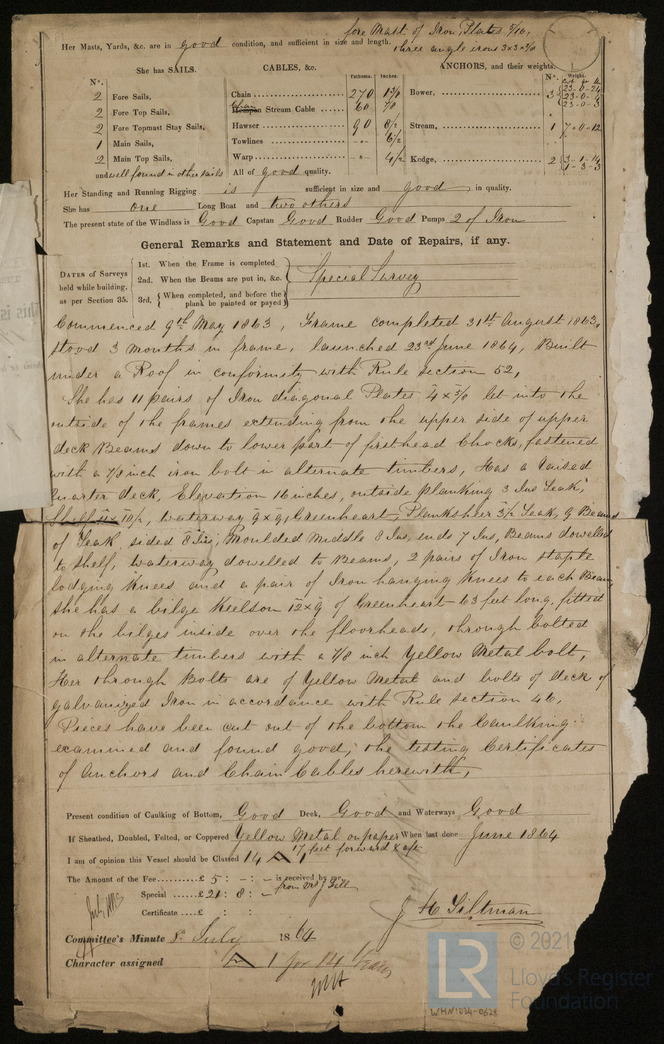 fore Mast of Iron, Plates 5/16,
Her Masts, Yards, &c. are in good condition, and sufficient in size and length. three angle irons 3x3x
She has SAILS. CABLES, &c. ANCHORS, and their weights.
N°. Fathoms. Inches. N°. Weight.
2 Fore Sails, Chain 270 Bower, 3 23-0-
2 Fore Top Sails, Chain Hempen Stream Cable 60 7/8 23-0-3
2 Fore Topmast Stay Sails, Hawser 90 Stream, 1 7-0-12
1 Main Sails, Towlines 6 1/2
2 Main Top Sails, Warp 4 1/2 Kedge, 2 3-1-14
and well found in other sails All of good quality. 1-3-3
Her Standing and Running Rigging is sufficient in size and good in quality.
She has one Long Boat and two others
The present state of the Windlass is Good Capstan Good Rudder Good Pumps 2 of Iron
General Remarks and Statement and Date of Repairs, if any.
DATES of Surveys held while building, as per Section 35.
1st. When the Frame is completed
2nd. When the Beams are put in, &c. Special Survey
3rd. When completed, and before the plank be painted or payed
Commenced 9th May 1863, Frame completed 31st August 1863,
stood 3 months in frame, launched 23rd June 1864, Built
under a Roof in conformity with Rule section 52,
She has 11 pairs of Iron diagonal Plates let into the
outside of the frames extending from the upper side of upper
deck Beams down to lower part of firsthead Chocks, fastened
with a 7/8 inch iron bolt in alternate timbers, Has a raised
Quarter deck, Elevation 16 inches, outside planking 3 Ins Teak,
Shelf waterway 9 x 9 Greenheart, Planksheer Teak, 9 Beams
of Teak sided 8 Ins, Moulded Middle 8 Ins, ends 7 Ins, Beams dowelled
to shelf, waterway dowelled to Beams, 2 pairs of Iron staple
lodging knees and a pair of Iron hanging Knees to each Beam,
she has a bilge Keelson 12 x 9 of Greenheart 63 feet long, fitted
on the bilges inside over the floorheads, through bolted
in alternate timbers with a 7/8 inch Yellow Metal bolt,
Her through Bolts are of Yellow Metal and bolts of deck of
galvanized Iron in accordance with Rule section 46,
Pieces have been cut out of the bottom the Caulking
examined and found good, the testing Certificates
of Anchors and Chain Cables herewith,
Present condition of Caulking of Bottom, Good Deck, Good and Waterways Good
If Sheathed, Doubled, Felted, or Coppered Yellow Metal on paper When last done June 1864
17 feet forward & aft
I am of opinion this Vessel should be Classed 14 A 1
The Amount of the Fee £ 5 : - : - is received by me,
Special £ 21 : 8 : -
Certificate £ : :
J H Tiltman
Committee's Minute 8 July 1864
Character assigned A 1 for 14 Years
LR
© 2021
Lloyd's Register
Foundation
WHN1034-0628